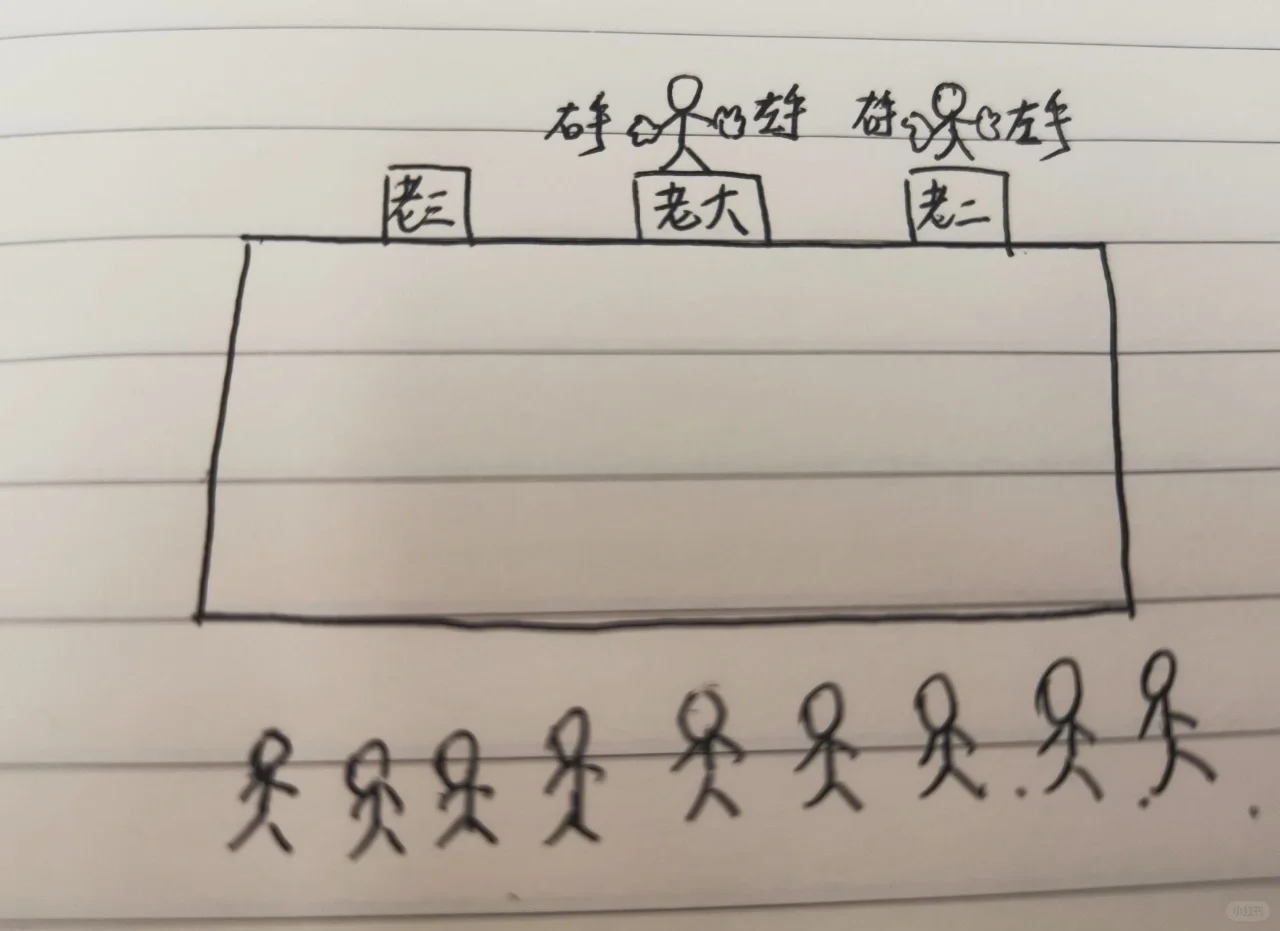 右手 左手 右手 左手
老三 老大 老二
小红书